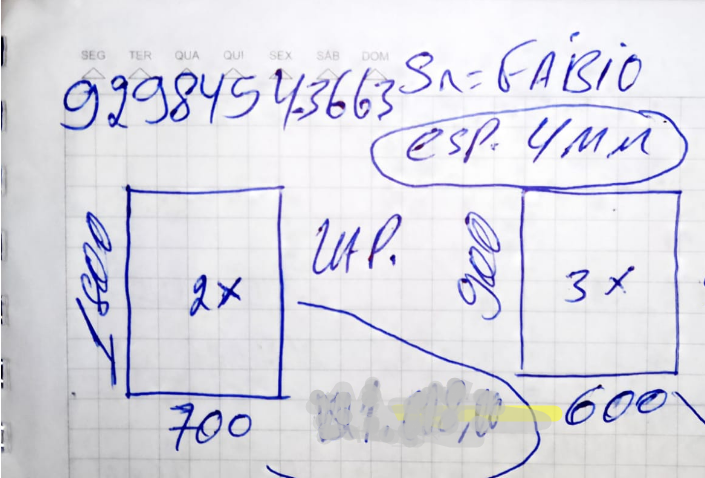 SEG TER QUA QUI SEX SÁB DOM
Sr= FÁBIO
92984543663
esp. 4MM
1800
2x
LAP.
900
3x
700
600